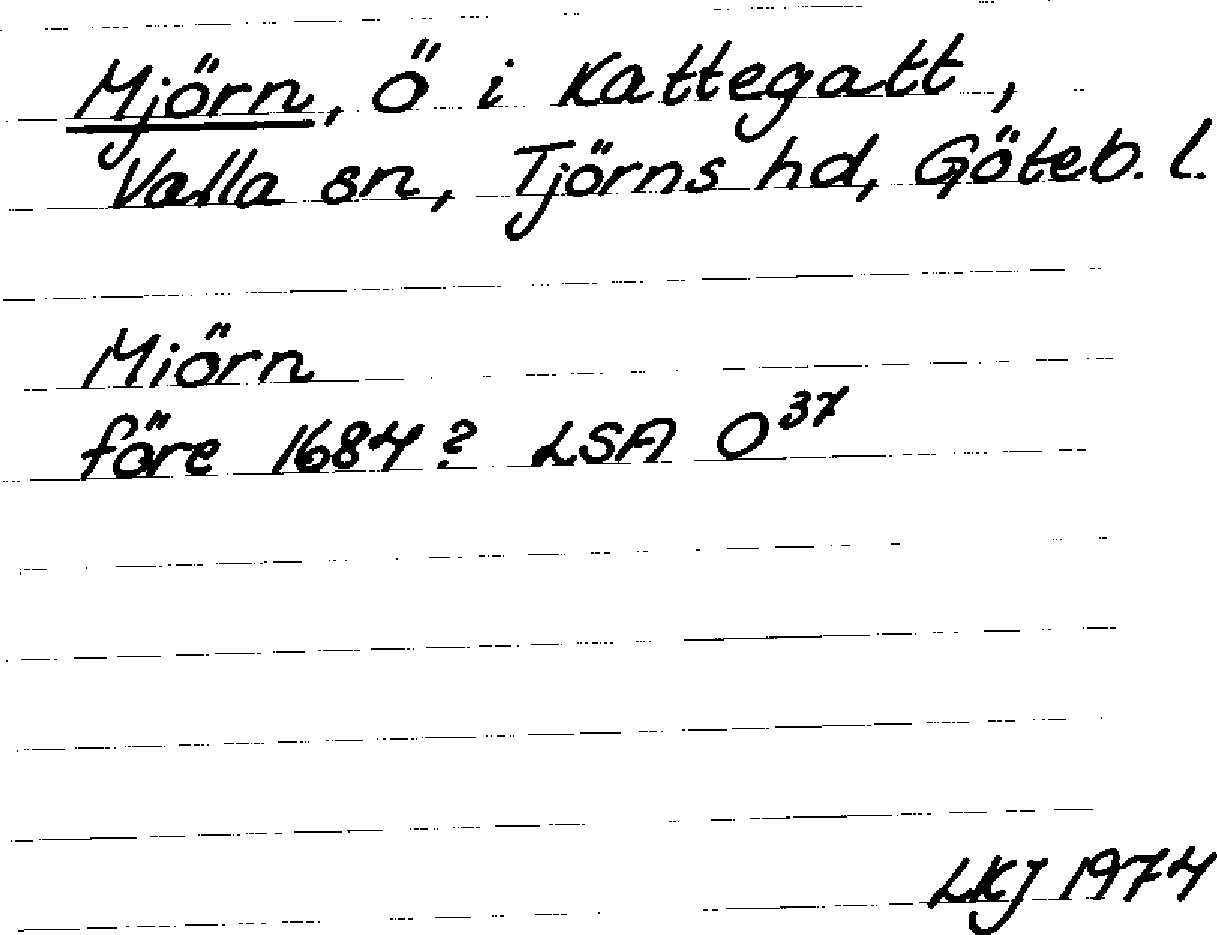 Mjörn, Ö i Kattegatt,
Valla sn, Tjörns hd, Göteb. l.
Miörn
före 1684? LSA O³⁷
LKJ 1974